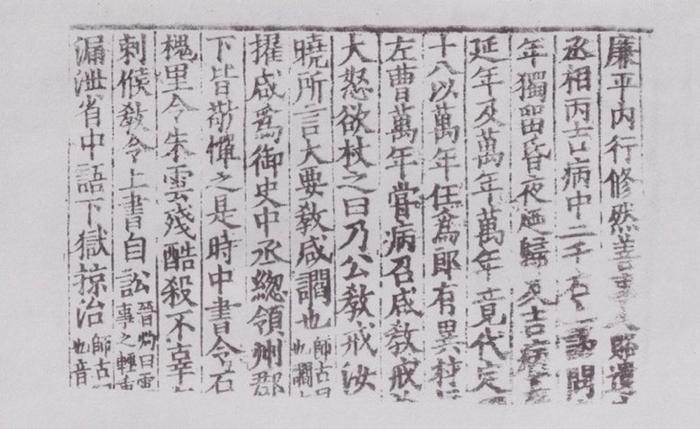 廉平內行修然善事人賂遺
丞相丙吉病中二千石上謁問
年獨畱昏夜廼歸及吉病甚
延年及萬年萬年竟代定
十八以萬年任爲郎有異材
左曹萬年嘗病召咸教戒
大怒欲杖之曰乃公教戒汝
曉所言大要教咸讇也師古曰
也讇
擢咸爲御史中丞緫領州郡
下皆敬憚之是時中書令石
槐里令朱雲殘酷殺不辜
刺候教令上書自訟晉灼曰雲
事之輕重
漏泄省中語下獄掠治師古
也音